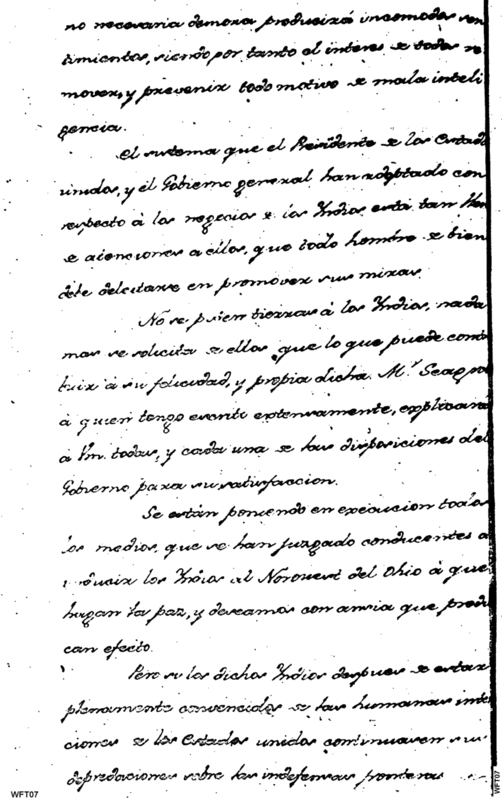 no necesaria demora producirá incomodos sen
timientos, siendo por tanto el interes de todos re
mover, y prevenir todo motivo de mala inteli
gencia.
El sistema que el Presidente de los Estados
unidos, y el Gobierno general han adoptado con
respecto à los negocios de los Yndios està tan lleno
de atenciones a ellos, que todo hombre de bien
debe deleitarse en promover sus miras
No se piden tierras à los Yndios, nada
mas se solicita de ellos que lo que puede contri
buir à su felicidad, y propia dicha. M.r Seagrove
à quien tengo escrito extensamente, explicarà
à Vm. todas, y cada una de las disposiciones del
Gobierno para su satisfaccion.
Se estàn poniendo en execucion todos
los medios, que se han juzgado conducentes a
reducir los Yndios al Noroueste del Ohio à que
hagan la paz, y deseamos con ansia que produz
can efecto.
Pero si los dichos Yndios despues de estar
plenamente convencidos de las humanas inten
ciones de los Estados unidos continuasen sus
depredaciones sobre las indefensas fronteras
WFT07
WFT07